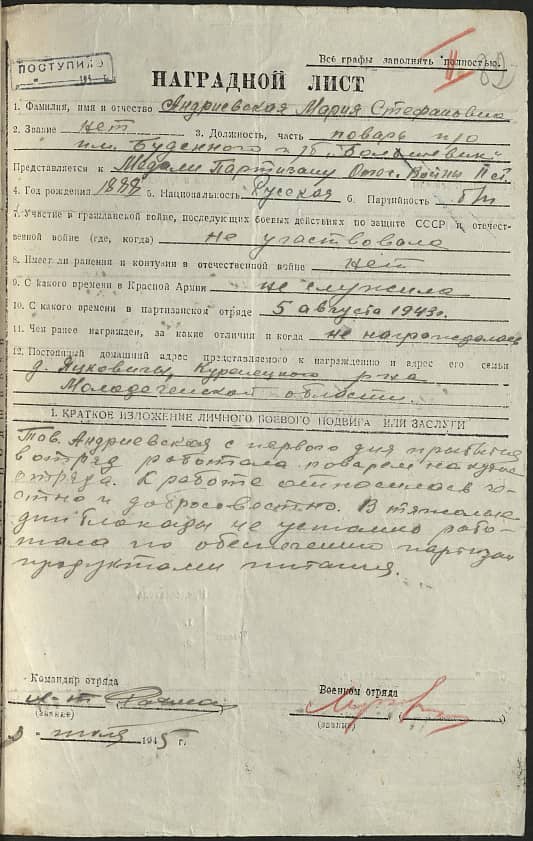 ПОСТУПИЛО
194
Все графы заполнять полностью.
II 82
НАГРАДНОЙ ЛИСТ
1. Фамилия, имя и отчество Андриевская Мария Стефановна
2. Звание нет 3. Должность, часть поварь п/о
им. Буденного п/б "Большевик"
Представляется к Медали Партизану Отеч. Войны II ст.
4. Год рождения 1888 5. Национальность Русская 6. Партийность б/п
7. Участие в гражданской войне, послелующих боевых действиях по защите СССР и отечест-
венной войне (где, когда) не участвовала
8. Имеет ли ранения и контузии в отечественной войне нет
9. С какого времени в Красной Армии не служила
10. С какого времени в партизанском отряде 5 августа 1943 г.
11. Чем ранее награжден, за какие отличия и когда не награждалась
12. Постоянный домашний адрес представляемого к награждению и адрес его семьи
д. Яцковичы, Куренецкого р-на
Молодеченской области.
I. КРАТКОЕ ИЗЛОЖЕНИЕ ЛИЧНОГО БОЕВОГО ПОДВИГА ИЛИ ЗАСЛУГИ
Тов. Андриевская с первого дня прибытия
в отряд работала поварем на кухне
отряда. К работе относилась
стно и добросовестно. В тяжелые
дни блокады не устанно рабо-
тала по обеспечению партизан
продуктами питания.
Командир отряда
Военком отряда
л-т
(звание)
(звание)
июля 1945 г.